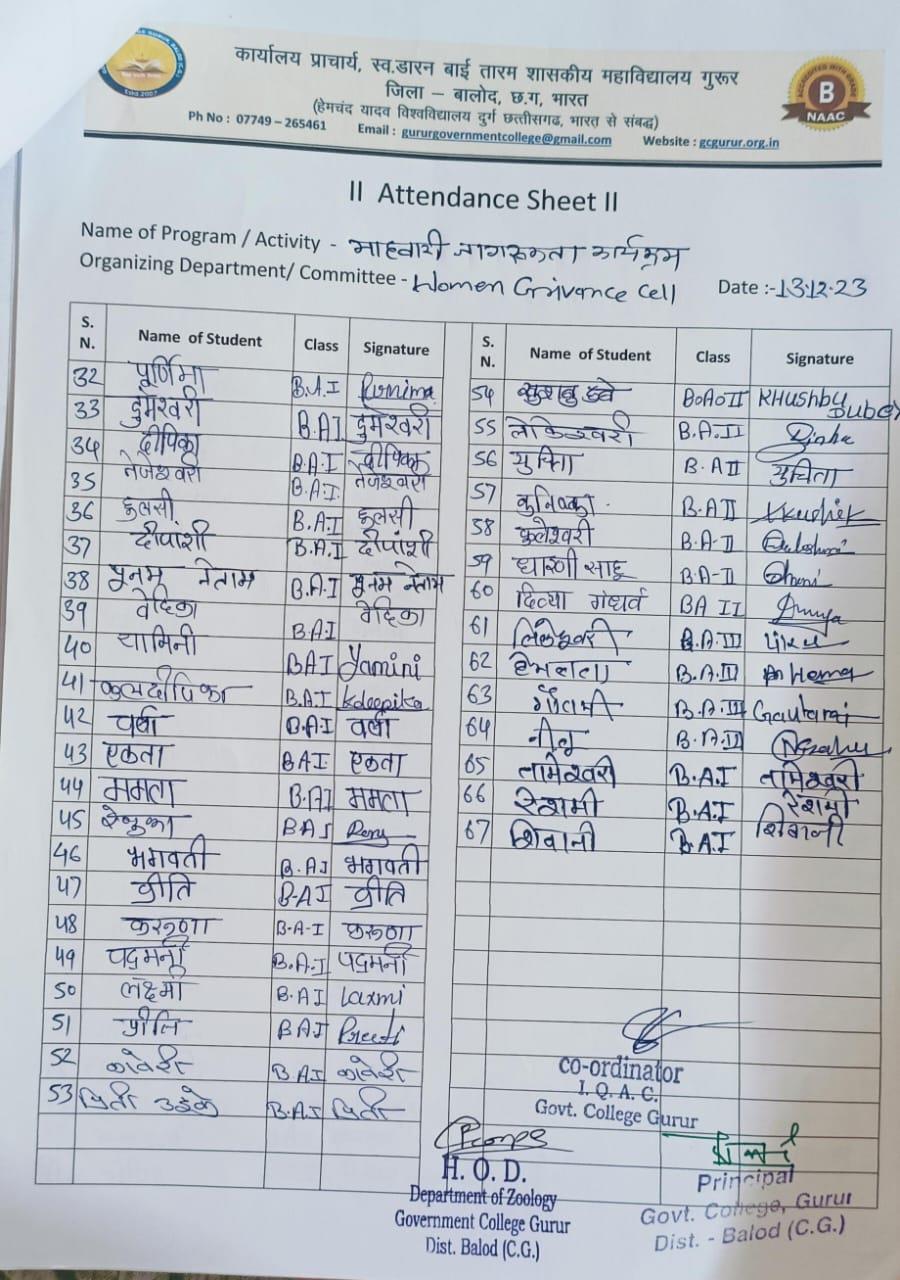 कार्यालय प्राचार्य, स्व.डारन बाई तारम शासकीय महाविद्यालय गुरूर
जिला – बालोद, छ.ग, भारत
(हेमचंद यादव विश्वविद्यालय दुर्ग छत्तीसगढ, भारत से संबद्ध)
Ph No : 07749 – 265461 Email : gururgovernmentcollege@gmail.com Website : gcgurur.org.in
Estd 2007
B
NAAC
II Attendance Sheet II
Name of Program / Activity - माहवारी जागरूकता कार्यक्रम
Organizing Department/ Committee - Women Grivance Cell Date :- 13.12.23
S. N. Name of Student Class Signature
32 पूर्णिमा B.A.I Purnima
33 डुमेश्वरी B.A.I डुमेश्वरी
34 दीपिका B.A.I दीपिका
35 तेजेश्वरी B.A.I. तेजेश्वरी
36 तुलसी B.A.I तुलसी
37 दीपांशी B.A.I दीपांशी
38 पुनम नेताम B.A.I पुनम नेताम
39 वेदिका B.A.I वेदिका
40 यामिनी BAI Yamini
41 कुलदीपिका B.A.I Kdeepika
42 वर्षा B.A.I वर्षा
43 एकता BAI एकता
44 ममता B.A.I ममता
45 रेणुका BAI
46 भगवती B.A.I भगवती
47 प्रीति B-A.I प्रीति
48 करूणा B-A-I करूणा
49 पदमनी B.A.I पदमनी
50 लक्ष्मी B.A.I Laxmi
51 प्रीति B.A.I Preeti
52 कावेरी B.A.I कावेरी
53 उइके B.A.I
S. N. Name of Student Class Signature
54 खुशबु दुबे B.A.II KHushbu Dubey
55 B.A.II
56 सुचिता B.A II सुचिता
57 B.A II
58 कुलेश्वरी B.A-II
59 धारणी साहू B.A-II
60 दिव्या गंधर्व BA II
61 B.A.III
62 हेमलता B.A.III Hema
63 गौतमी B.A.III Gautami
64 नीलू B.A.III
65 लामेश्वरी B.A.I लामेश्वरी
66 रेशमी B.A.I रेशमी
67 शिवानी B.A.I शिवानी
co-ordinator
I. Q. A. C.
Govt. College Gurur
H. O. D.
Department of Zoology
Government College Gurur
Dist. Balod (C.G.)
Principal
Govt. College, Gurur
Dist. - Balod (C.G.)